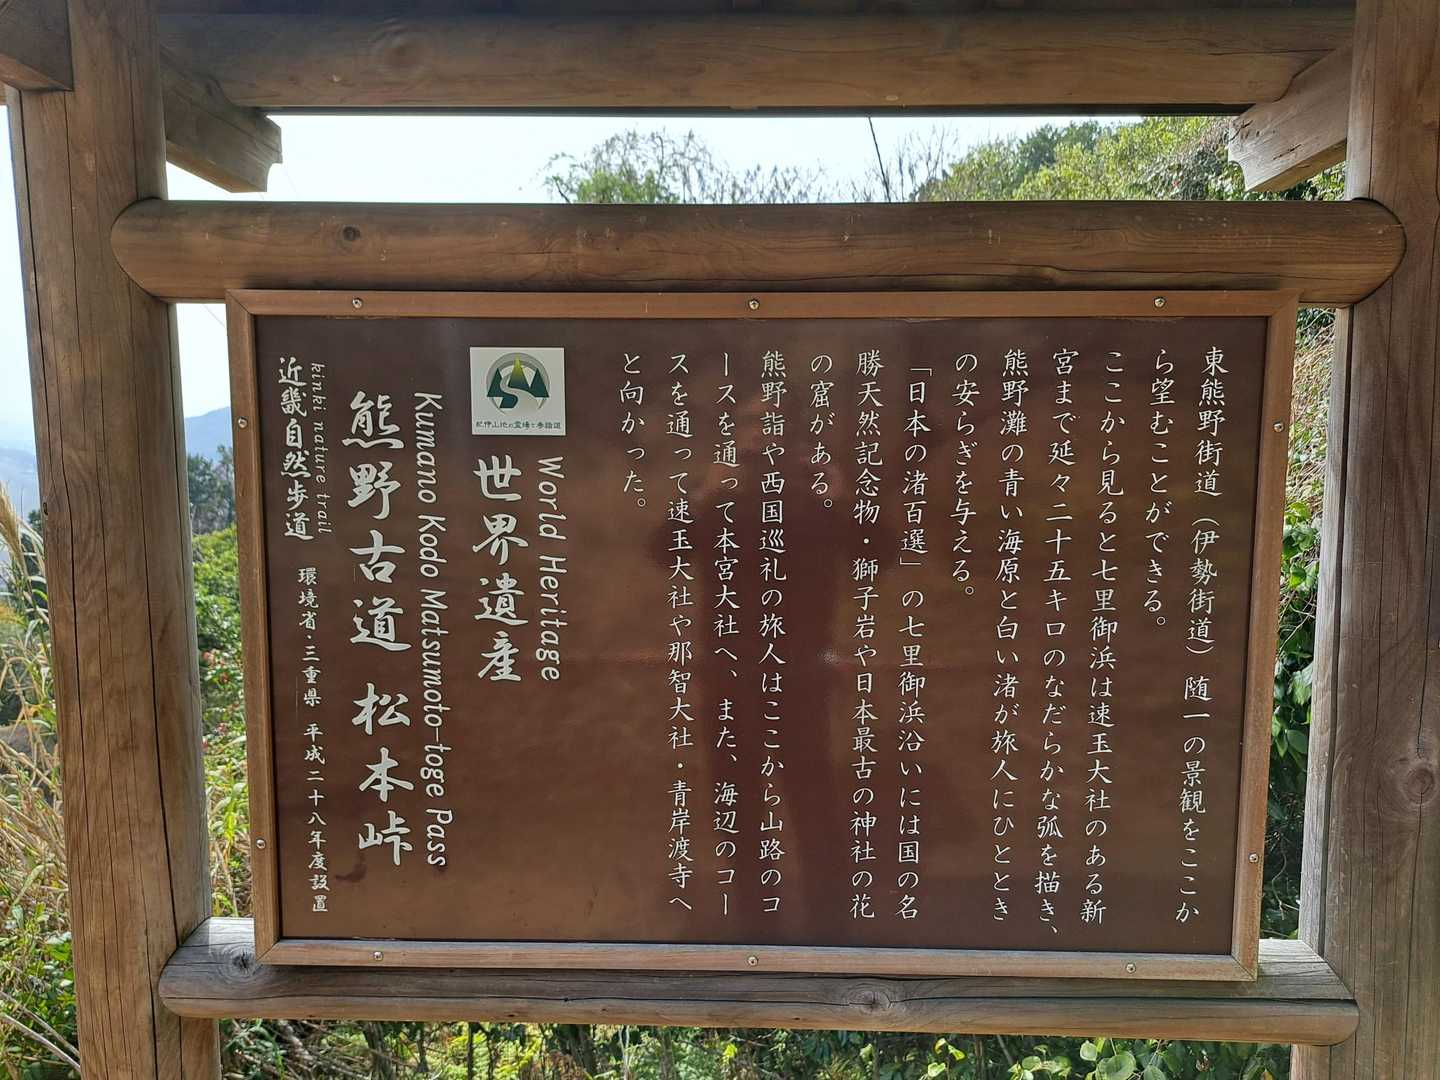 東熊野街道（伊勢街道）随一の景観をここか
ら望むことができる。
ここから見ると七里御浜は速玉大社のある新
宮まで延々二十五キロのなだらかな弧を描き、
熊野灘の青い海原と白い渚が旅人にひととき
の安らぎを与える。
「日本の渚百選」の七里御浜沿いには国の名
勝天然記念物・獅子岩や日本最古の神社の花
の窟がある。
熊野詣や西国巡礼の旅人はここから山路のコ
ースを通って本宮大社へ、また、海辺のコー
スを通って速玉大社や那智大社・青岸渡寺へ
と向かった。
紀伊山地の霊場と参詣道
World Heritage
世界遺産
Kumano Kodo Matsumoto-toge Pass
熊野古道 松本峠
kinki nature trail
近畿自然歩道
環境省・三重県 平成二十八年度設置